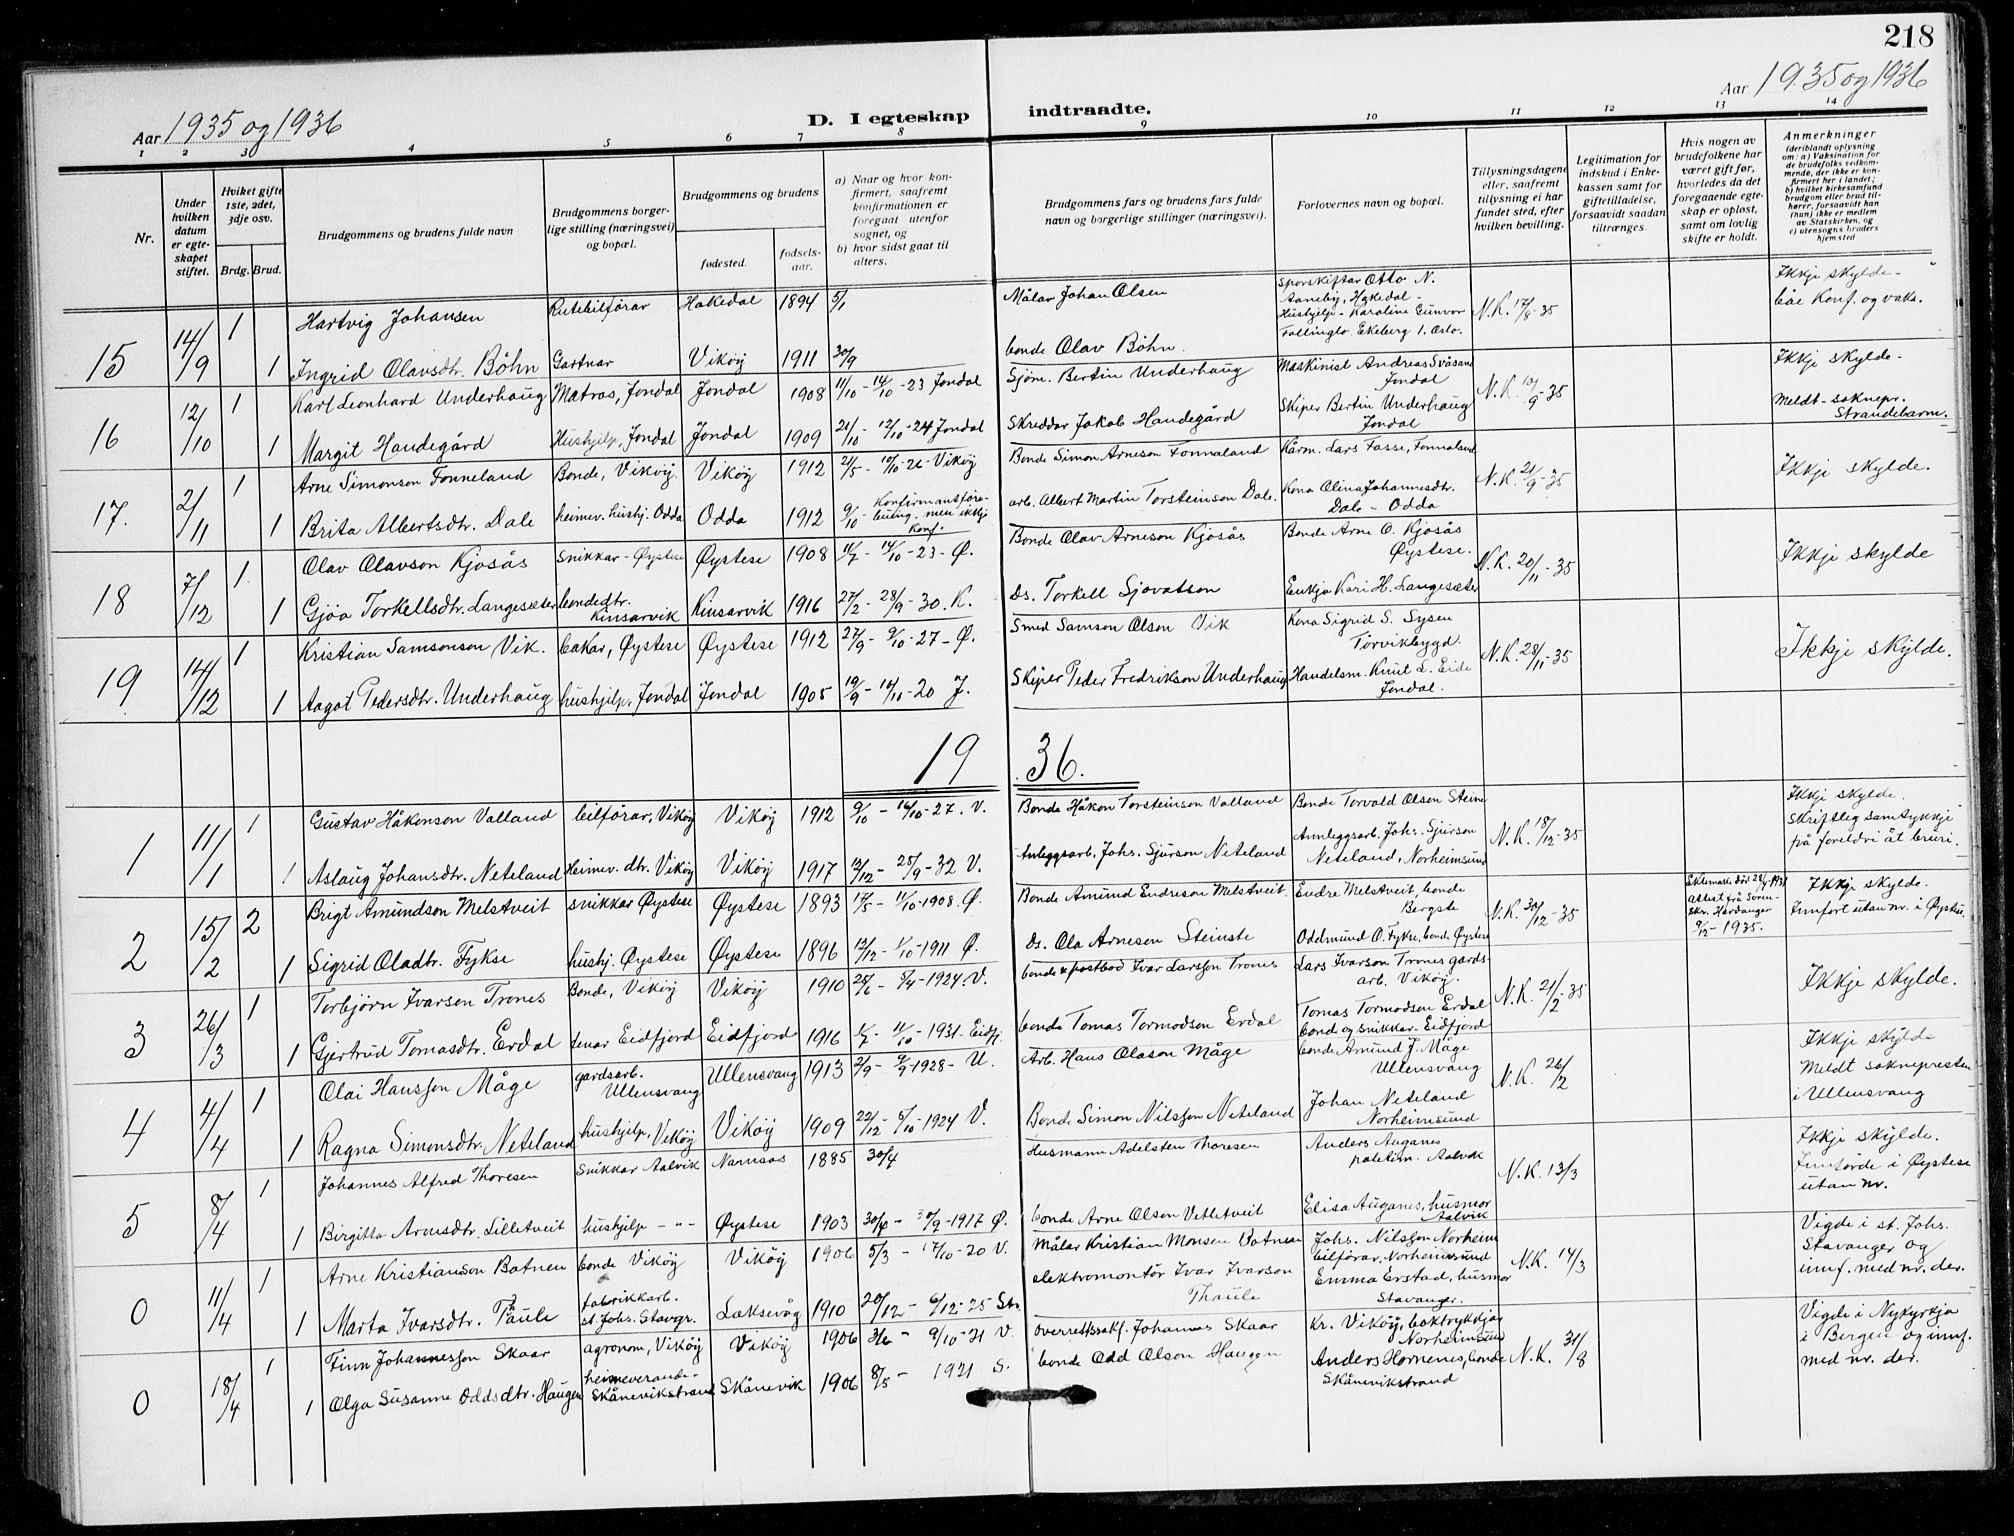 218
Aar 1935 og 1936
D. I egteskap indtraadte.
Aar 1935 og 1936
1 2 3 4 5 6 7 8 9 10 11 12 13 14
Nr.
Under hvilken datum er egteskapet stiftet.
Hviket gifte 1ste, 2det, 3dje osv.
Brdg. Brud.
Brudgommens og brudens fulde navn
Brudgommens borgerlige stilling (næringsvei) og bopæl.
Brudgommens og brudens
fødested.
fødselsaar.
a) Naar og hvor konfirmert, saafremt konfirmationen er foregaat utenfor sognet, og
b) hvor sidst gaat til alters.
Brudgommens fars og brudens fars fulde navn og borgerlige stillinger (næringsvei).
Forlovernes navn og bopæl.
Tillysningsdagene eller, saafremt tillysning ei har fundet sted, efter hvilken bevilling.
Legitimation for indskud i Enkekassen samt for giftetilladelse, forsaavidt saadan tiltrænges.
Hvis nogen av brudefolkene har været gift før, hvorledes da det foregaaende egteskap er opløst, samt om lovlig skifte er holdt.
Anmerkninger (deriblandt oplysning om: a) Vaksination for de brudefolks vedkommende, der ikke er konfirmert her i landet; b) hvilket kirkesamfund brudgom eller brud tilhører, forsaavidt han (hun) ikke er medlem av Statskirken, og c) utensogns bruders hjemsted
15 14/9 1 Hartvig Johansen Rutebilförar Hakedal 1894 5/1 Målar Johan Olsen Sporskiftar Otto N. Aaneby, Hakedal - Hushjelp - Karoline Gunvor Ekeberg 1. Oslo. N.K. 17/8-35 Ikkje skylde - båe konf. og vaks.
1 Ingrid Olavsdtr. Böhn Gartnar Vikøy 1911 30/9 bonde Olav Böhn.
16 12/10 1 Karl Leonhard Underhaug Matros, Jondal Jondal 1908 11/10 - 14/10 - 23 Jondal Sjöm. Bertin Underhaug Maskinist Andreas Svåsand Jondal N.K. 10/9-35 Ikkje skylde - Meldt - soknepr. Strandebarm.
1 Margit Handegård Hushjelp, Jondal Jondal 1909 21/10 - 12/10 - 24 Jondal Skreddar Jakob Handegård Skiper Bertin Underhaug Jondal
17. 2/11 1 Arne Simonson Fonneland Bonde, Vikøy. Vikøy 1912 2/5 - 10/10 - 26 - Vikøy Bonde Simon Arneson Fonnaland Lars Fosse, Fonnaland N.K. 21/9-35 Ikkje skylde.
1 Brita Albertsdtr. Dale heimev. hushj. Odda Odda 1912 9/10 - Konfirmantførebuing - men ikkje konf. arb. Albert Martin Torsteinson Dale. Kona Olina Johannesdtr. Dale - Odda
18 7/12 1 Olav Olavson Kjosås Snikkar - Øystese Øystese 1908 11/7 - 14/10 - 23 - Ø. Bonde Olav Arneson Kjosås Bonde Arne O. Kjosås Øystese. N.K. 20/11-35 Ikkje skylde
1 Gjøa Torkellsdtr. Langesæter bondedtr. Kinsarvik Kinsarvik 1916 27/2 - 28/9 - 30. K. Ds. Torkell Sjovatson Enkja Kari H. Langesæter
19 14/12 1 Kristian Samsonson Vik. bakar, Øystese Øystese 1912 27/9 - 9/10 - 27 - Ø. Smed Samson Olson Vik Kona Sigrid S. Sysen Torvikbygd. N.K. 28/11-35 Ikkje skylde.
1 Aagot Pedersdtr. Underhaug hushjelp, Jondal Jondal 1905 19/9 - 10/10 - 20 J. Skiper Peder Fredrikson Underhaug Handelsm. Knut L. Eide Jondal.
19 36.
1 11/1 1 Gustav Håkonson Valland bilförar, Vikøy Vikøy 1912 9/10 - 16/10 - 27. V. Bonde Håkon Torsteinson Valland Bonde Torvald Olson Steine N.K. 18/12-35 Ikkje skylde. Skriftleg samtykkje på foreldri åt bruri.
1 Aslaug Johansdtr. Neteland Heimev. dtr. Vikøy Vikøy 1917 12/12 - 25/9 - 32 V. Anleggsarb. Johs. Sjurson Neteland Annleggsarb. Johs. Sjurson Neteland, Norheimsund
2 15/2 2 Brigt Amundson Melstveit snikkar Øystese Øystese 1893 17/5 - 11/10 - 1908. Ø. Bonde Amund Endreson Melstveit. Endre Melstveit, bonde Bergste N.K. 30/12-35 Ektemake död 1931 Attest frå Sorenskr. Hardanger 9/12 - 1935. Ikkje skylde. Innfört utan nr. i Øystese
1 Sigrid Oladtr. Fykse hushj. Øystese Øystese 1896 12/12 - 1/10 - 1911 Ø. Ds. Ola Arneson Steinste Oddmund O. Fykse, bonde Øystese
3 26/3 1 Torbjörn Ivarson Trones Bonde, Vikøy Vikøy 1910 25/6 - 5/4 - 1924. V. bonde & postbod Ivar Larsson Trones Lars Ivarson Trones gardsarb. Vikøy. N.K. 21/2-35 Ikkje skylde.
1 Gjertrud Tomasdtr. Erdal tenar Eidfjord Eidfjord 1916 1/7 - 11/10 - 1931. Eidfj. bonde Tomas Tormodson Erdal Tomas Tormodson Erdal bonde og snikkar - Eidfjord
4 4/4 1 Olai Hansson Måge gardsarb. Ullensvang Ullensvang 1913 2/9 - 9/9 - 1928 - U. Arb. Hans Olason Måge bonde Amund J. Måge Ullensvang N.K. 26/2 Ikkje skylde Meldt soknepresten i Ullensvang
1 Ragna Simonsdtr. Neteland hushjelp, Vikøy Vikøy 1909 22/12 - 5/10 - 1924 V. Bonde Simon Nilsson Neteland Johan Neteland Norheimsund
5 8/4 1 Johannes Alfred Thoresen Snikkar Aalvik Namsos 1885 30/4 Husmann Adelsten Thoresen Anders Auganes Aalvik N.K. 13/3 Ikkje skylde. Innförde i Øystese utan nr.
1 Birgitta Arnesdtr. Lilletveit hushjelp - " - Øystese 1903 30/6 - 30/9 - 1917 Ø. bonde Arne Olson Vetletveit Elisa Auganes, husmor Aalvik
0 11/4 1 Arne Kristianson Botnen bonde Vikøy Vikøy 1906 5/3 - 17/10 - 20 V. Målar Kristian Monsen Botnen Johs. Nilsson Norheim bilförar, Norheimsund N.K. 14/3 Vigde i st. Johs. Stavanger og innf. med nr. der.
1 Marta Ivarsdtr. Thaule fabrikkarb. st. Johs. Stavgr. Laksevåg 1910 20/12 - 6/12 - 25 St. elektromontör Ivar Ivarson Thaule Emma Erstad, husmor Stavanger.
0 18/4 1 Finn Johannesson Skaar agronom, Vikøy Vikøy 1906 3/6 - 9/10 - 21 V. overrettssakf. Johannes Skaar Kr. Vikøy, boktrykkjar Norheimsund N.K. 31/8 Vigde i Nykyrkja i Bergen og innf. med nr. der.
1 Olga Susanne Oddsdtr. Haugen heimeverande - Skånevikstrand Skånevik 1906 8/5 - 1921 S. bonde Odd Olson Haugen Anders Hornenes, bonde Skånevikstrand